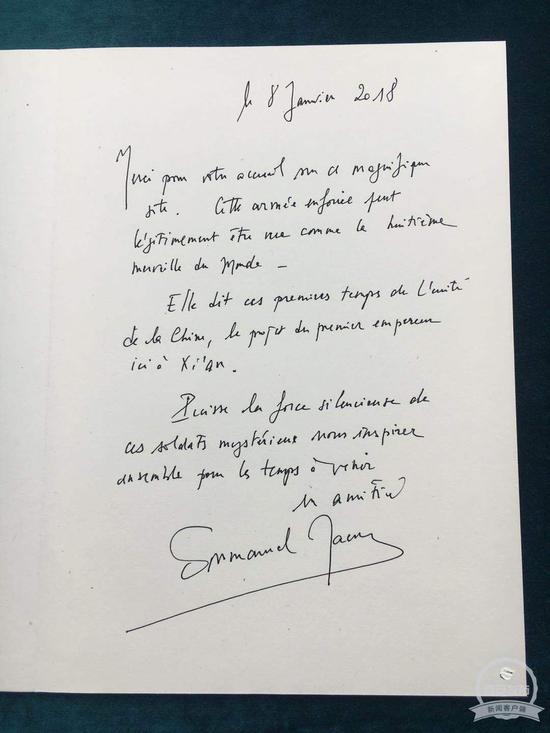 le 8 Janvier 2018
Merci pour votre accueil sur ce magnifique
site. Cette armée enfouie peut
légitimement être vue comme la huitième
merveille du Monde –
Elle dit ces premiers temps de L'unité
de la Chine, le projet du premier empereur
ici à Xi'an.
Puisse la force silencieuse de
ces soldats mystérieux nous inspirer
ensemble pour les temps à venir
en amitié
Emmanuel Macron
新闻客户端